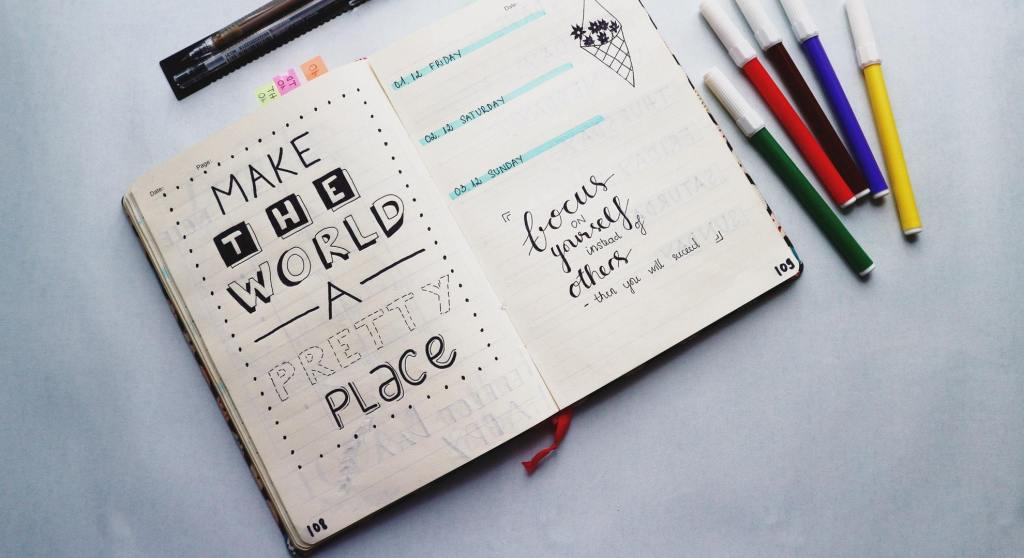 Date:
Page:
MAKE
THE
WORLD
A
PRETTY
PLACE
108
Date:
01. 12 FRIDAY
02. 12 SATURDAY
03. 12 SUNDAY
focus
ON
yourself
instead of
others
- then you will succeed
109